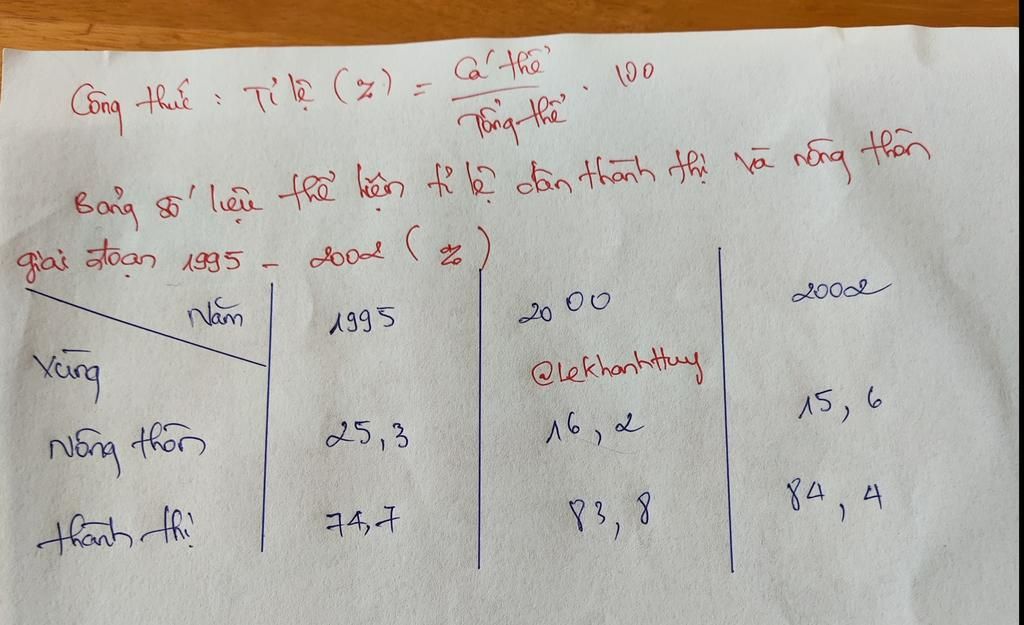 Công thức : Tỉ lệ (%) = Cá thể / Tổng thể . 100
Bảng số liệu thể hiện tỉ lệ dân thành thị và nông thôn
giai đoạn 1995 - 2002 (%)
Năm 1995 2000 2002
Vùng
@LeKhanhHuy
Nông thôn 25,3 16,2 15,6
Thành thị 74,7 83,8 84,4